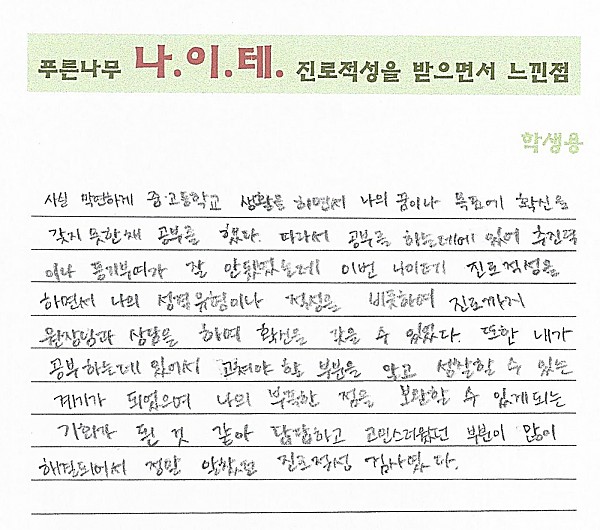 푸른나무 나.이.테. 진로적성을 받으면서 느낀점
학생용
사실 막연하게 중·고등학교 생활을 하면서 나의 꿈이나 목표에 확신을
갖지 못한채 공부를 했다. 따라서 공부를 하는데에 있어 추진력
이나 동기부여가 잘 안됐었는데 이번 나이테 진로적성을
하면서 나의 성격유형이나 적성을 비롯하여 진로까지
원장님과 상담을 하며 확신을 갖을 수 있었다. 또한 내가
공부하는데 있어서 고쳐야 할 부분을 알고 성찰할 수 있는
계기가 되었으며 나의 부족한 점을 보완할 수 있게되는
기회가 된 것 같아 답답하고 고민스러웠던 부분이 많이
해결되어서 정말 알찼던 진로적성 검사였다.